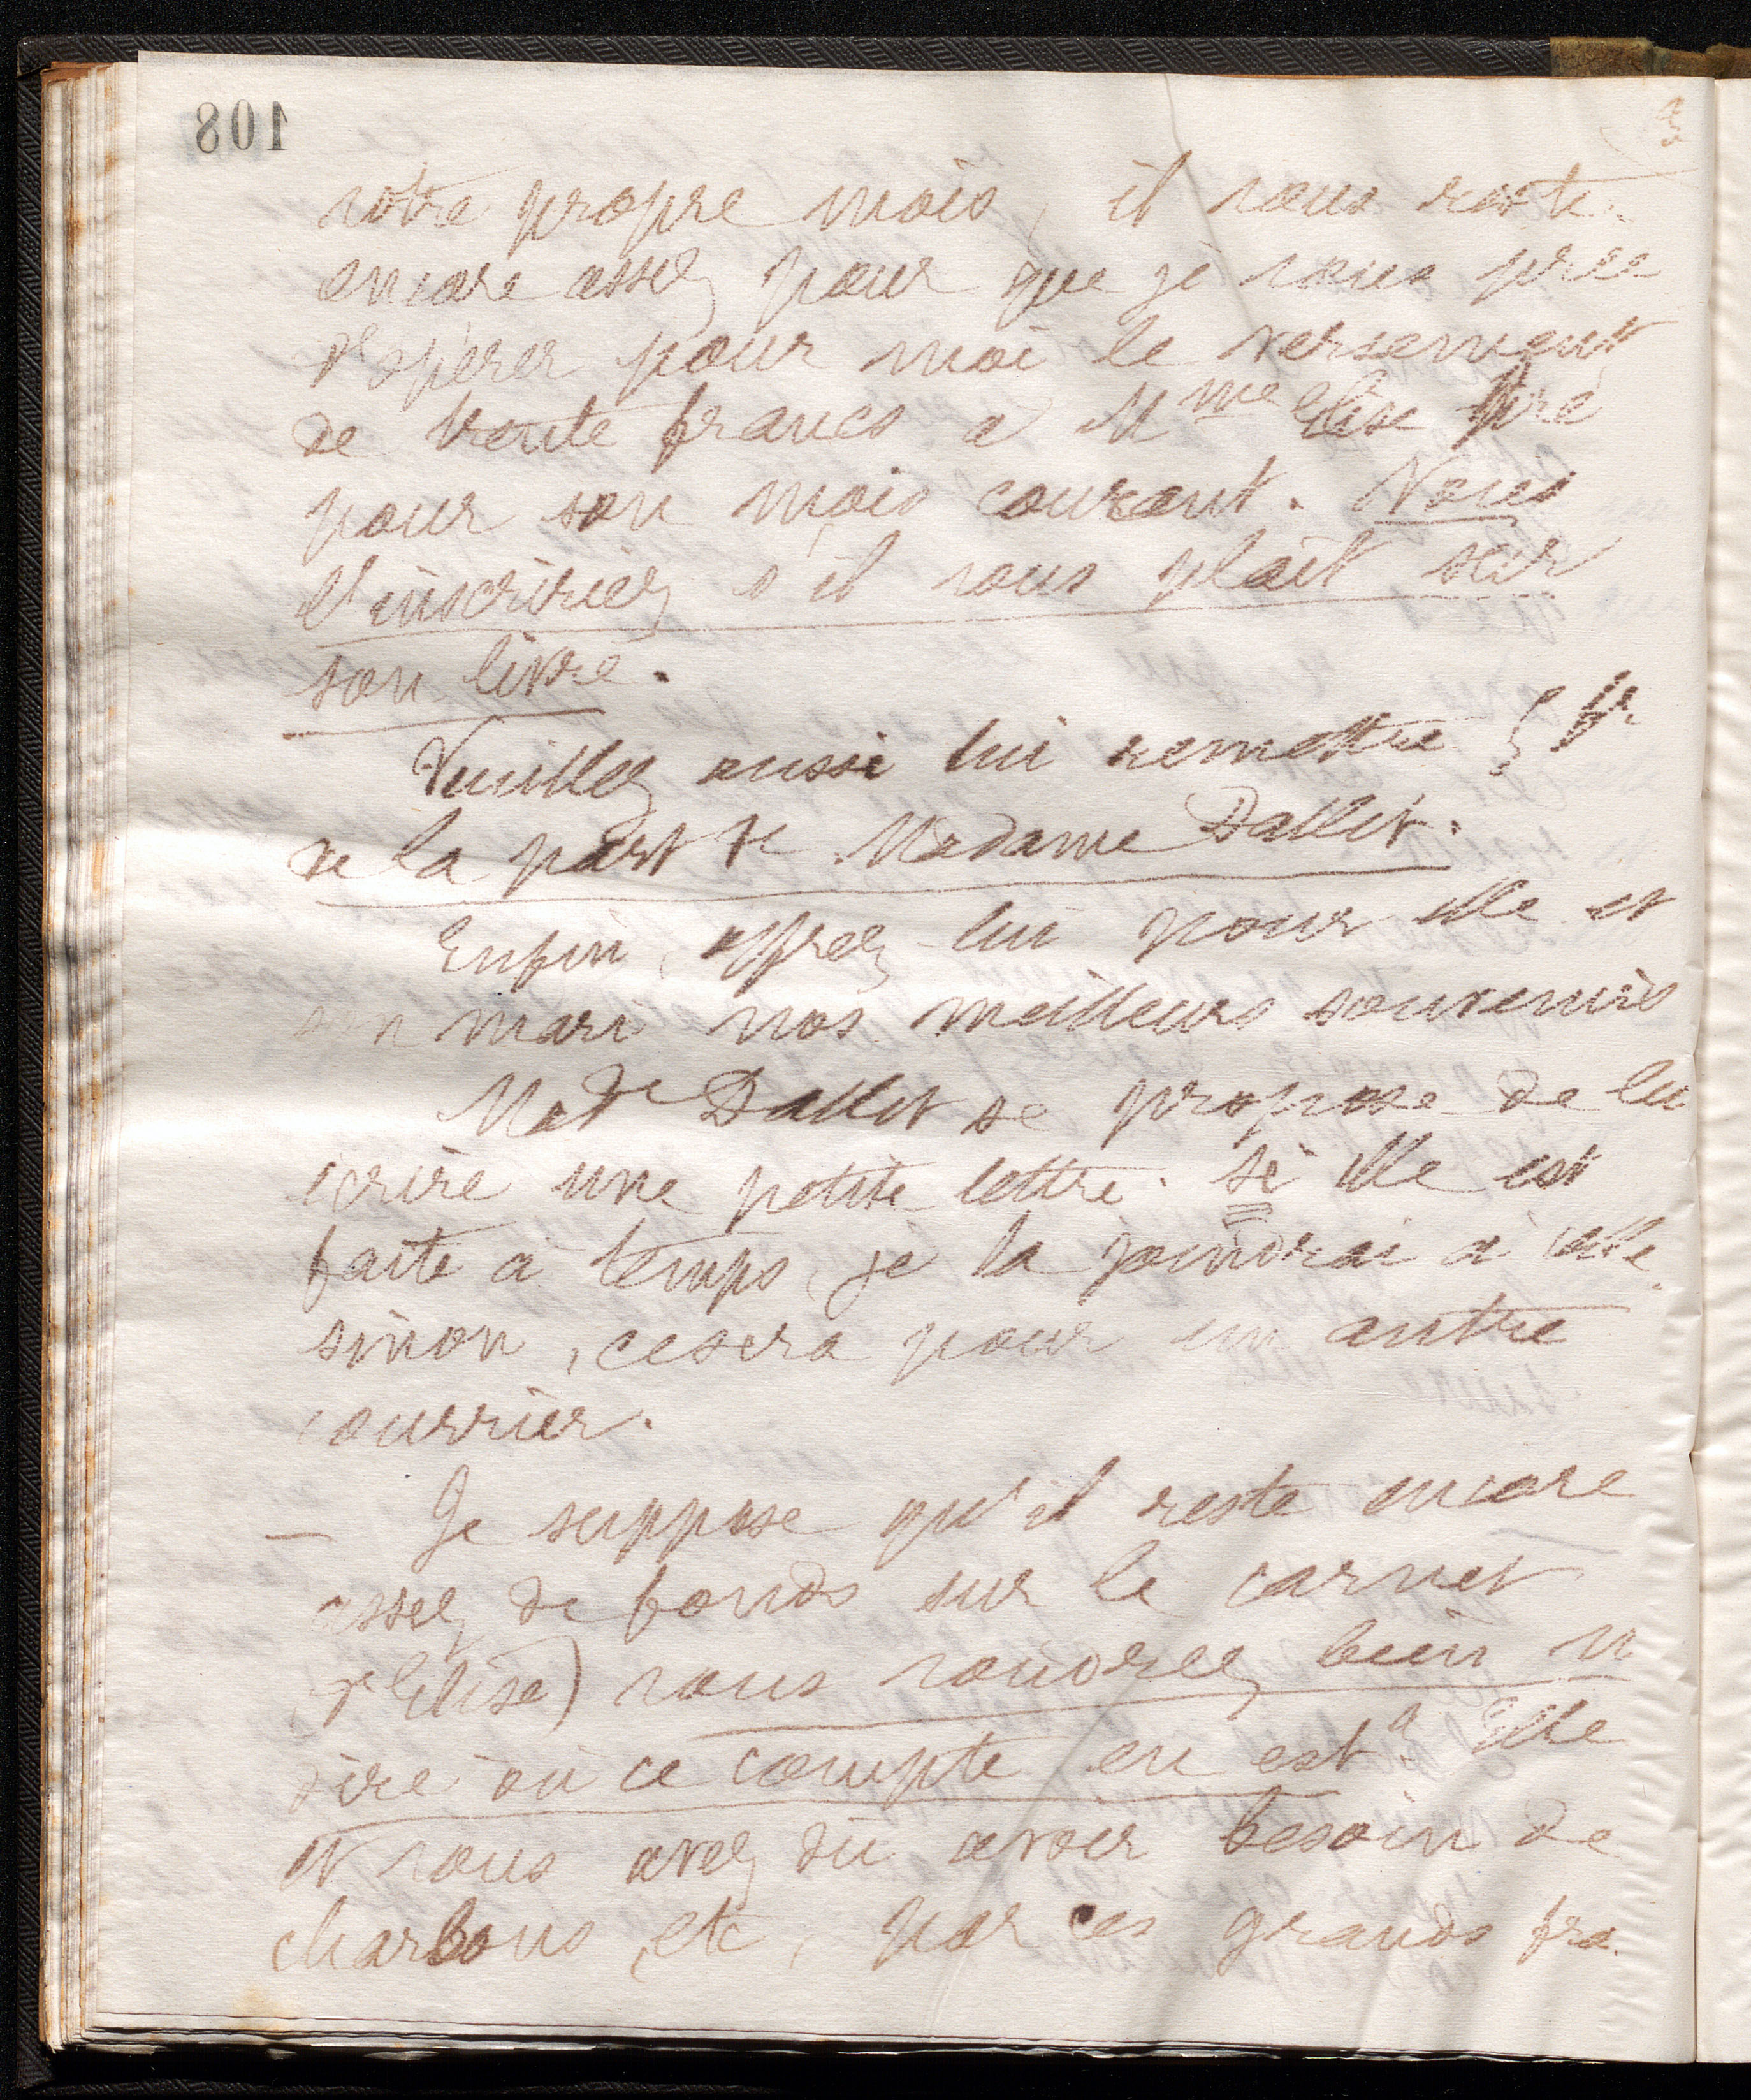 108
votre propre mois, il vous reste
encore assez pour que je vous prie
d'opérer pour moi le versement
de trente francs a Mme Elise
pour son mois courant. Vous
l'inscririez s'il vous plait sur
son livre.
Veuillez aussi lui remettre 5 fr.
de la part de Madame Dallet.
Enfin, offrez-lui pour elle et
son mari nos meilleurs souvenirs
Made Dallet se propose de lui
écrire une petite lettre. Si elle est
faite à temps, je la joindrai à celle
sinon, ce sera pour un autre
courrier.
— Je suppose qu'il reste encore
assez de fonds sur le carnet
(d'Elise) vous voudrez bien m
dire où ce compte en est? Elle
et vous avez dû avoir besoin de
charbons, etc, par ces grands fro.